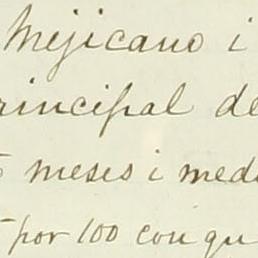 Mejicano i
rincipal de
meses i med
por 100 con qu